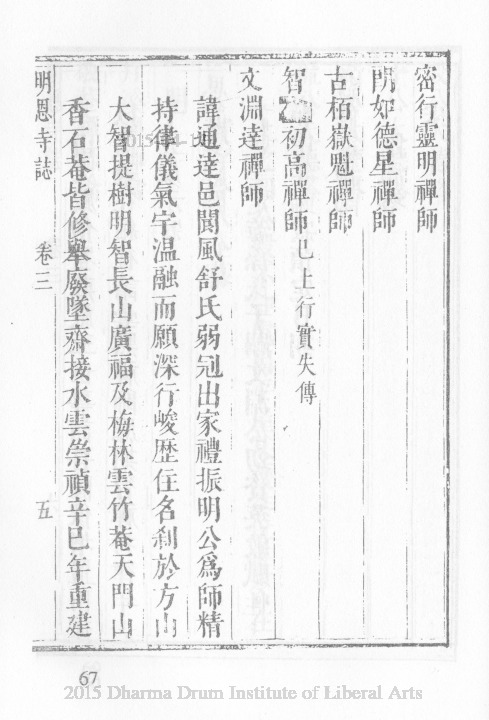 密行靈明禪師
門如德星禪師
古栢嶽魁禪師
智初高禪師已上行實失傳
文淵達禪師
諱通達邑閬風舒氏弱冠出家禮振明公爲師精
持律儀氣宇温融而願深行峻歷住名刹於方山
大智提樹明智長山廣福及梅林雲竹菴天門山
香石菴皆修舉廢墜齋接水雲崇禎辛巳年重建
明恩寺誌 卷三 五
67
2015 Dharma Drum Institute of Liberal Arts